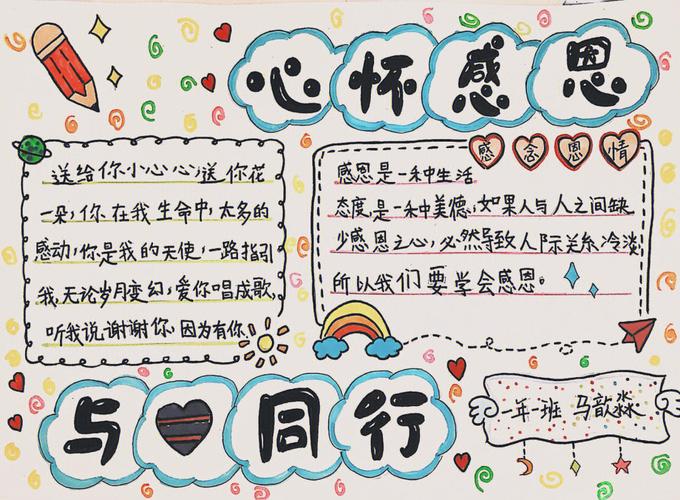 心怀感恩
送给你小心心,送你花
一朵,你在我生命中,太多的
感动,你是我的天使,一路指引
我,无论岁月变幻,爱你唱成歌,
听我说谢谢你,因为有你,
感念恩情
感恩是一种生活
态度,是一种美德,如果人与人之间缺
少感恩之心,必然导致人际关系冷淡,
所以我们要学会感恩。
与 同行
一年一班 马歆淼